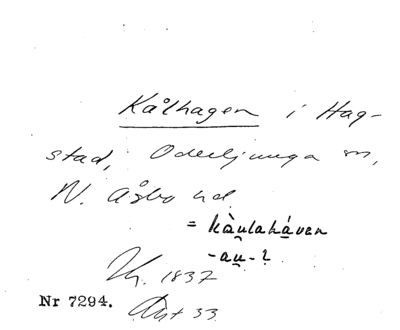 Kålhagen i Hag-
stad, Oderljunga sn,
N. Åsbo hd
= kàulaháven
-au-?
1837
Nr 7294.
33